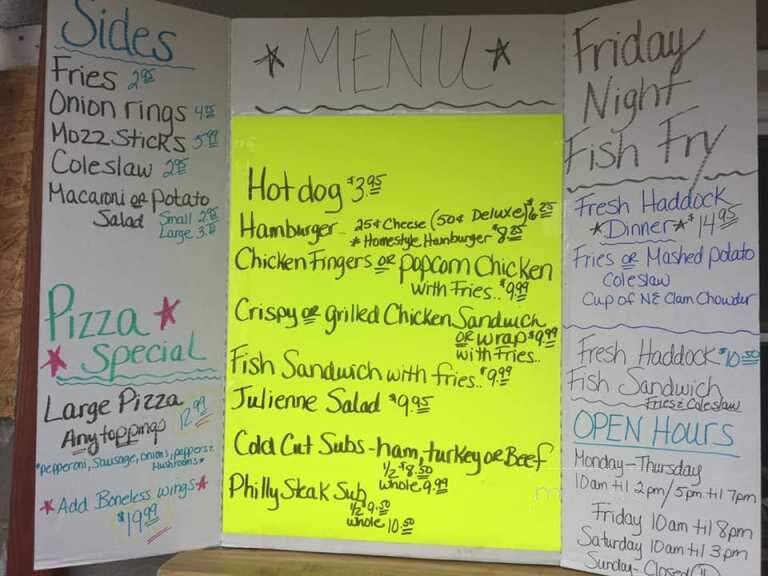 Sides
Fries 2.95
Onion rings 4.95
Mozz Sticks 5.99
Coleslaw 2.95
Macaroni or Potato
Salad Small 2.95
Large 3.75
Pizza
Special
Large Pizza
Any toppings 12.99
*Pepperoni, Sausage, Onions, peppers &
Mushrooms*
Add Boneless wings
$19.99
MENU
Hotdog $3.95
Hamburger 25¢ Cheese (50¢ Deluxe) $6.25
* Homestyle Hamburger $8.25
Chicken Fingers or popcorn Chicken
with Fries.. $9.99
Crispy or grilled Chicken Sandwich
or wrap $9.99
with Fries..
Fish Sandwich with fries.. $9.99
Julienne Salad $9.95
Cold Cut Subs - ham, turkey or Beef
1/2 $8.50
whole 9.99
Philly Steak Sub
1/2 9.50
whole 10.50
Friday
Night
Fish Fry
Fresh Haddock
*Dinner* $14.95
Fries or Mashed potato
Coleslaw
Cup of NE Clam Chowder
Fresh Haddock $10.50
Fish Sandwich
Fries & Coleslaw
OPEN HOURS
Monday - Thursday
10am til 2pm/5pm til 7pm
Friday 10am til 8pm
Saturday 10am til 3pm
Sunday - Closed